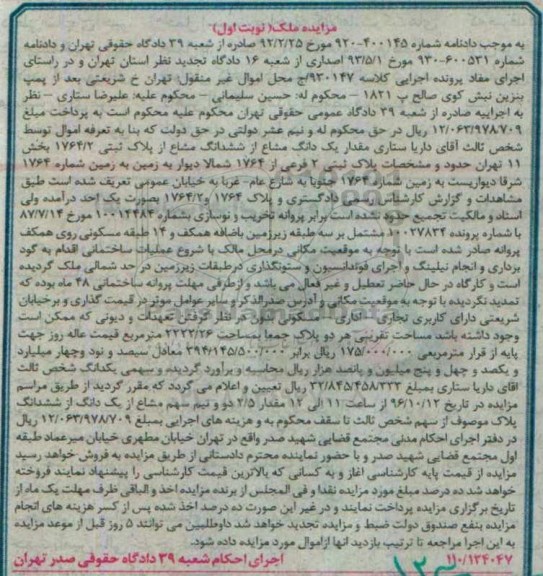 مزایده ملک( نوبت اول)
به موجب دادنامه شماره ۴۰۰۱۴۵-۹۲۰ مورخ ۹۲/۲/۲۵ صادره از شعبه ۳۹ دادگاه حقوقی تهران و دادنامه
شماره ۶۰۰۵۳۱-۹۳۰ مورخ ۹۳/۵/۱ اصداری از شعبه ۱۶ دادگاه تجدید نظر استان تهران و در راستای
اجرای مفاد پرونده اجرایی کلاسه ۹۳۰۱۴۷/ج محل اموال غیر منقول: تهران خ شریعتی بعد از پمپ
بنزین نبش کوی صالح پ ۱۸۲۱ – محکوم له: حسین سلیمانی – محکوم علیه: علیرضا ستاری – نظر
به اجراییه صادره از شعبه ۳۹ دادگاه عمومی حقوقی تهران محکوم علیه محکوم است به پرداخت مبلغ
۱۲/۰۶۳/۹۷۸/۷۰۹ ریال در حق محکوم له و نیم عشر دولتی در حق دولت که بنا به تعرفه اموال توسط
شخص ثالث آقای داریا ستاری مقدار یک دانگ مشاع از ششدانگ مشاع از پلاک ثبتی ۱۷۶۴/۲ بخش
۱۱ تهران حدود و مشخصات پلاک ثبتی ۲ فرعی از ۱۷۶۴ شمالا دیوار به زمین به زمین شماره ۱۷۶۴
شرقا دیواریست به زمین شماره ۱۷۶۴ جنوبا به شارع عام- غربا به خیابان عمومی تعریف شده است طبق
مشاهدات و گزارش کارشناس رسمی دادگستری و پلاک ۱۷۶۴ و۱۷۶۴/۲ بصورت یک واحد درآمده ولی
اسناد و مالکیت تجمیع حدود نشده است برابر پروانه تخریب و نوسازی بشماره ۱۰۰۱۴۴۸۴ مورخ ۸۷/۷/۱۴
با شماره پرونده ۱۰۰۲۷۸۳۴ مشتمل بر سه طبقه زیرزمین باضافه همکف و ۱۴ طبقه مسکونی روی همکف
پروانه صادر شده است با توجه به موقعیت مکانی درمحل مالک با شروع عملیات ساختمانی اقدام به گود
برداری و انجام نیلینگ و اجرای فوندانسیون و ستونگذاری درطبقات زیرزمین در حد شمالی ملک گردیده
است و کارگاه در حال حاضر تعطیل و غیر فعال می باشد و ازطرفی مهلت پروانه ساختمانی ۴۸ ماه بوده که
تمدید نگردیده با توجه به موقعیت مکانی و آدرس صدرالذکر و سایر عوامل موثر در قیمت گذاری و برخیابان
شریعتی دارای کاربری تجاری – اداری – مسکونی بدون در نظر گرفتن تعهدات و دیونی که ممکن است
وجود داشته باشد مساحت تقریبی هر دو پلاک جمعا بمساحت ۲۲۲۲/۲۶ مترمربع قیمت عاله روز جهت
پایه از قرار مترمربعی ۱۷۵/۰۰۰/۰۰۰ ریال برابر ۳۹۴/۱۴۵/۵۰۰/۰۰۰ معادل سیصد و نود وچهار میلیارد
و یکصد و چهل و پنج میلیون و پانصد هزار ریال محاسبه و برآورد گردیده و سهمی یکدانگ شخص ثالث
اقای داریا ستاری بمبلغ ۳۲/۸۴۵/۴۵۸/۳۳۳ ریال تعیین و اعلام می گردد که مقرر گردید از طریق مراسم
مزایده در تاریخ ۹۶/۱۰/۱۲ از ساعت ۱۱ الی ۱۲ مقدار ۲/۵ دو و نیم سهم مشاع از یک دانگ از ششدانگ
پلاک موصوف از سهم شخص ثالث تا سقف محکوم به و هزینه های اجرایی بمبلغ ۱۲/۰۶۳/۹۷۸/۷۰۹ ریال
در دفتر اجرای احکام مدنی مجتمع قضایی شهید صدر واقع در تهران خیابان مطهری خیابان میرعماد طبقه
اول مجتمع قضایی شهید صدر و با حضور نماینده محترم دادستانی از طریق مزایده به فروش خواهد رسید
مزایده از قیمت پایه کارشناسی اغاز و به کسانی که بالاترین قیمت کارشناسی را پیشنهاد نمایند فروخته
خواهد شد ده درصد مبلغ مورد مزایده نقدا و فی المجلس از برنده مزایده اخذ و الباقی ظرف مهلت یک ماه از
تاریخ برگزاری مزایده پرداخت نمایند و در غیر این صورت ده درصد اخذ شده پس از کسر هزینه های انجام
مزایده بنفع صندوق دولت ضبط و مزایده تجدید خواهد شد داوطلبین می توانند ۵ روز قبل از موعد مزایده
به این اجرا مراجعه تا ترتیب بازدید انها ازاموال مورد مزایده داده شود.
۱۱۰/۱۳۴۰۴۷ اجرای احکام شعبه ۳۹ دادگاه حقوقی صدر تهران